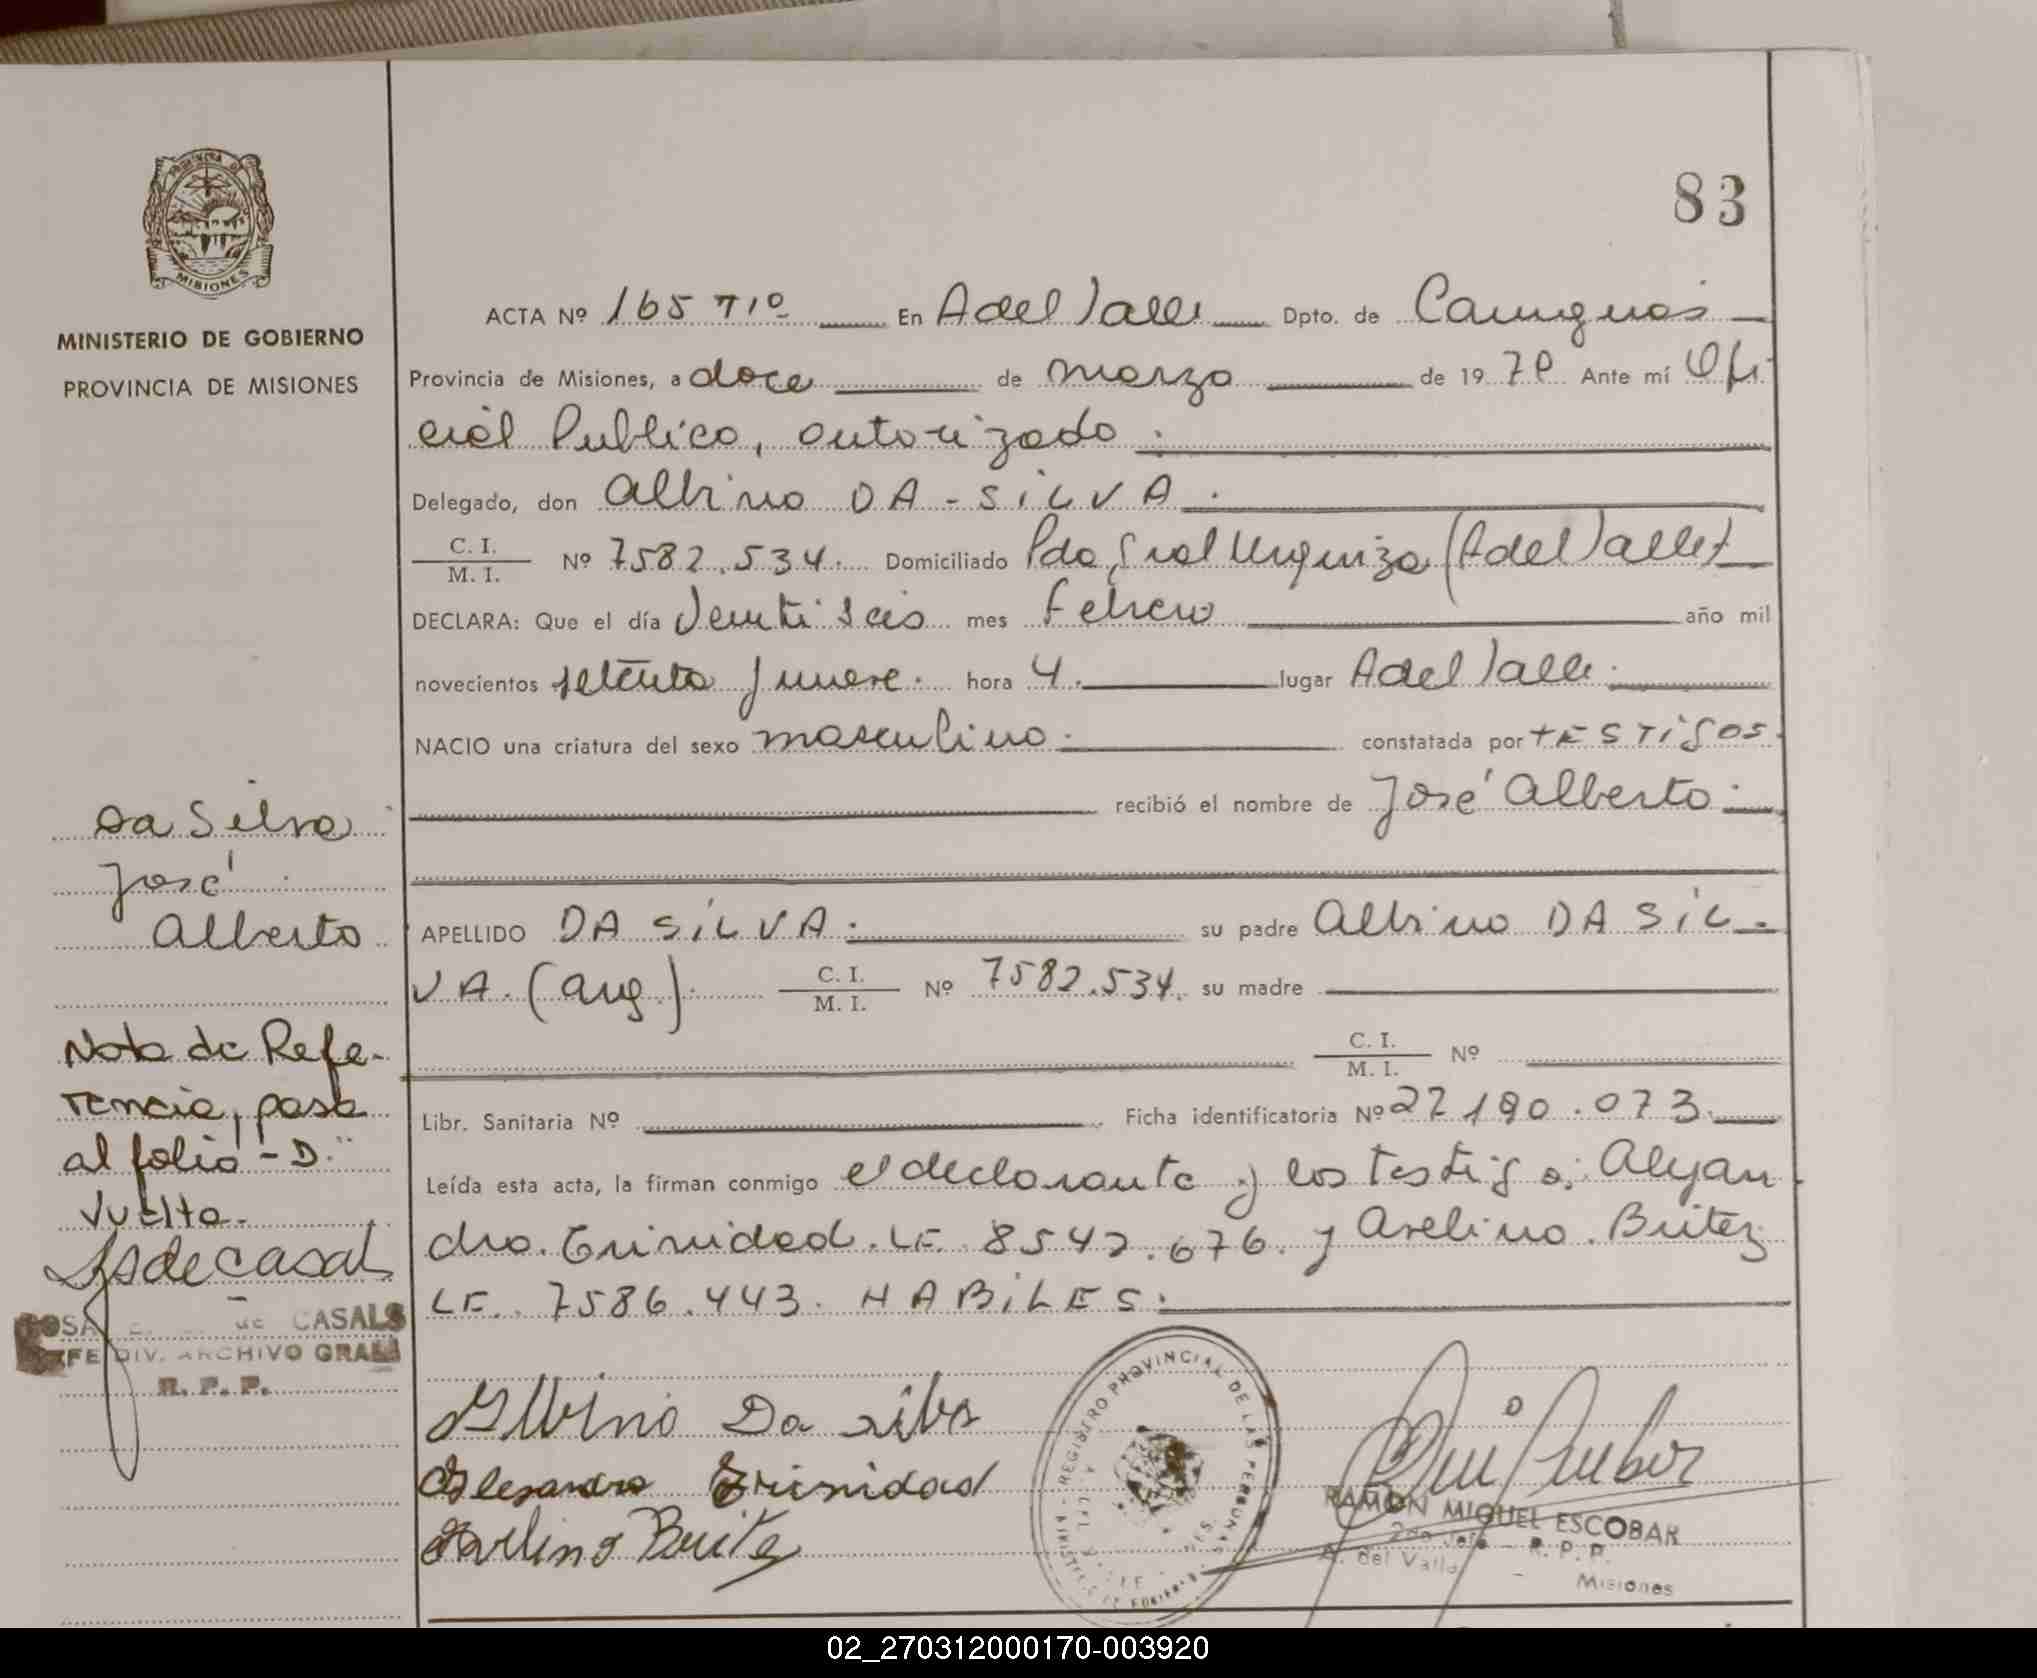 83
PROVINCIA DE
MISIONES
MINISTERIO DE GOBIERNO
PROVINCIA DE MISIONES
ACTA Nº 165 Tº En A del Valle Dpto. de Cainguas
Provincia de Misiones, a doce de marzo de 19 Ante mí Ofi
cial Publico, autorizado.
Delegado, don Albino DA-SILVA.
C. I.
M. I. Nº 7582.534. Domiciliado Pdo Gral Urquiza (A del Valle)
DECLARA: Que el día Veinti seis mes Febrero año mil
novecientos setenta y nueve. hora 4. lugar A del Valle.
NACIO una criatura del sexo masculino. constatada por TESTIGOS.
recibió el nombre de José Alberto.
APELLIDO DA SILVA. su padre Albino DA SIL-
VA. (arg.). C. I.
M. I. Nº 7582.534. su madre
C. I.
M. I. Nº
Libr. Sanitaria Nº Ficha identificatoria Nº 27190.073.
Leída esta acta, la firman conmigo el declarante y los testigos: Alejan
dro. Trinidad. LE. 8542.676. y Avelino. Britez
LE. 7586.443. HABILES.
Da Silva
José
Alberto
Nota de Refe-
rencia, pasa
al folio -D"
Vuelta.
de CASALS
JEFE DIV. ARCHIVO GRAL
R. P. P.
Albino Da silva
Alesandro Trinidad
Avelino Britez
REGISTRO PROVINCIAL DE LAS PERSONAS
RAMON MIGUEL ESCOBAR
2do Jefe - R. P. P.
A. del Valle - Misiones
02_270312000170-003920